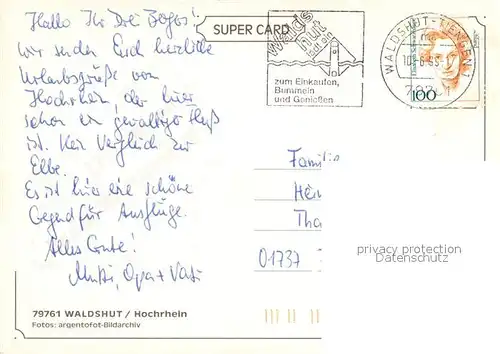 Hallo Ihr Drei Boges!
wir senden Euch herzliche
Urlaubsgrüße vom
Hochrhein, der hier
schon ein gewaltiger Fluß
ist. Kein Vergleich zur
Elbe.
Es ist hier eine schöne
Gegend für Ausflüge.
Alles Gute!
Mutti, Opa + Vati
79761 WALDSHUT / Hochrhein
Fotos: argentofot-Bildarchiv
SUPER CARD
Waldshut
lädt ein
zum Einkaufen,
Bummeln
und Genießen
WALDSHUT-TIENGEN 1
100
Famili
Hei
Tha
01737
privacy protection
Datenschutz